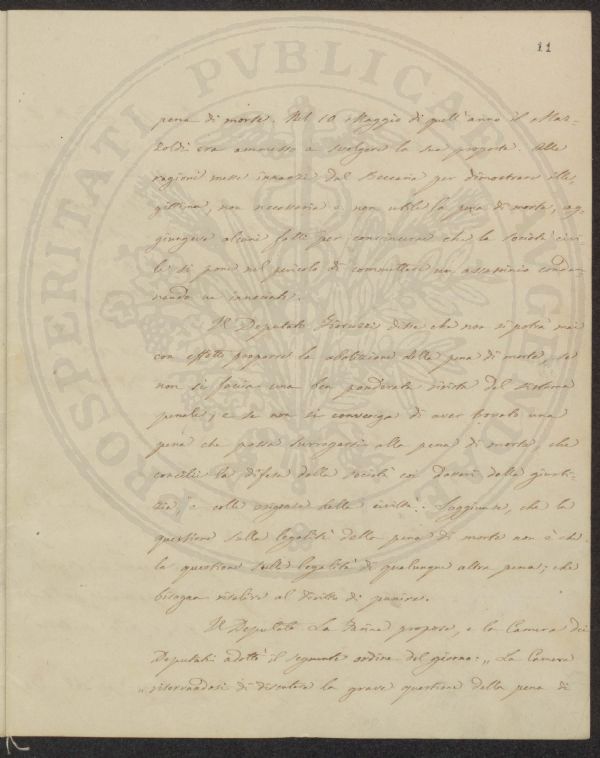 11
PROSPERITATI PVBLICAE AVGENDAE
pena di morte. Nel 10 Maggio di quell'anno il Maz=
zoldi era ammesso a svolgere la sua proposta. Alle
ragioni messe innanzi dal Beccaria per dimostrare ille=
gittima, non necessaria e non utile la pena di morte, ag
giungeva alcuni fatti per convincere che la società civi
le si pone nel pericolo di commettere un assassinio condan
nando un innocente.
Il Deputato disse che non si potrà mai
con effetto proporre la abolizione della pena di morte, se
non si faccia una ben ponderata rivista del sistema
penale; e se non si convenga di aver trovato una
pena che possa surrogarsi alla pena di morte, che
concilii la difesa della società coi doveri della giusti
zia, e colle esigenze della civiltà. Soggiunse, che la
questione sulla legalità della pena di morte non è che
la questione sulla legalità di qualunque altra pena; che
bisogna risalire al diritto di punire.
Il Deputato La Farina propose, e la Camera dei
Deputati adottò il seguente ordine del giorno: „ La Camera
„ riservandosi di discutere la grave questione della pena di